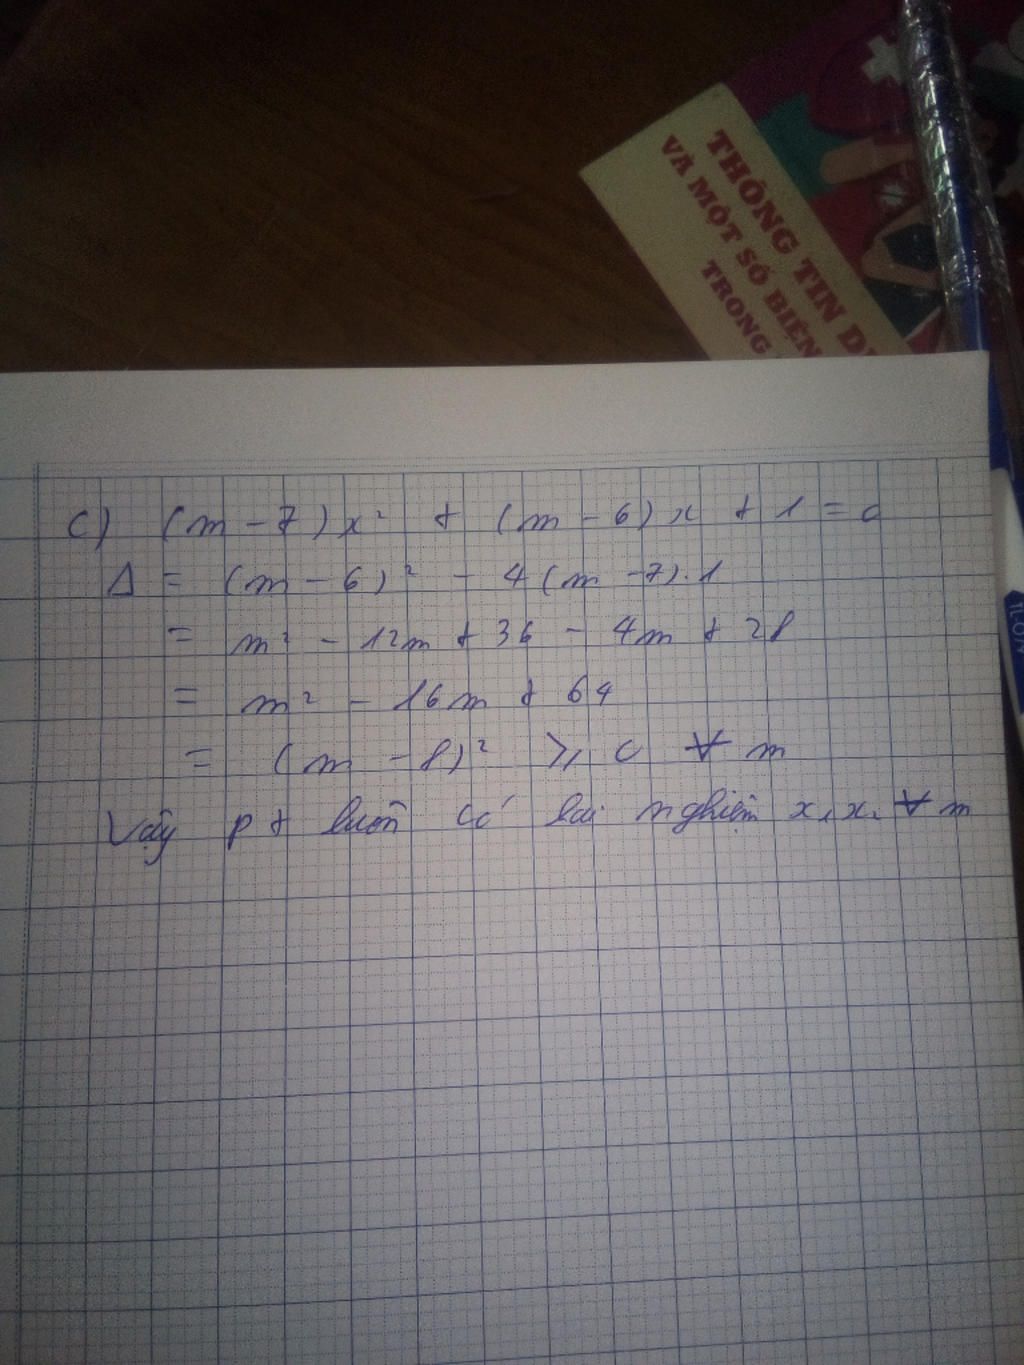 THÔNG TIN
VÀ MỘT SỐ BIỆN
TRONG
c) (m - 7)x² + (m - 6)x + 1 = 0
Δ = (m - 6)² - 4(m - 7).1
= m² - 12m + 36 - 4m + 28
= m² - 16m + 64
= (m - 8)² ≥ 0 ∀ m
Vậy pt luôn có hai nghiệm x₁ x₂ ∀ m